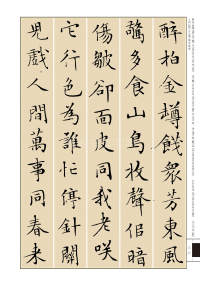 醉拍金罇餞眾芳東風
多食山鳥收聲佀暗
傷皺卻面皮同我老咲
它行色為誰忙停針關
兒戲人間萬事同春來